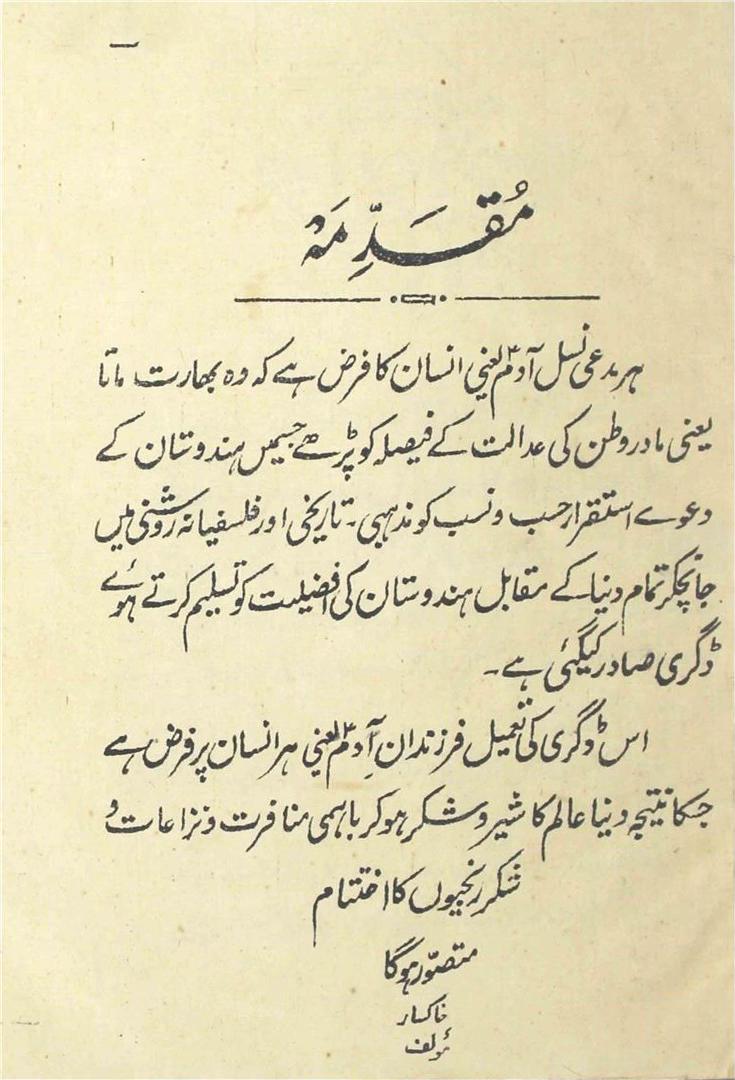 مُقَدِّمَہ
ہر مدعی نسل آدمؑ یعنی انسان کا فرض ہے کہ وہ بھارت ماتا
یعنی مادر وطن کی عدالت کے فیصلہ کو پڑھے جسمیں ہندوستان کے
دعوے استقرار حسب و نسب کو مذہبی۔ تاریخی اور فلسفیانہ روشنی میں
جانچکر تمام دنیا کے مقابل ہندوستان کی افضلیت کو تسلیم کرتے ہوئے
ڈگری صادر کیگئی ہے۔
اس ڈگری کی تعمیل فرزندان آدمؑ یعنی ہر انسان پر فرض ہے
جسکا نتیجہ دنیا عالم کا شیر و شکر ہو کر باہمی منافرت و نزاعات و
شکر رنجیوں کا اختتام
متصوّر ہوگا
خاکسار
مؤلف